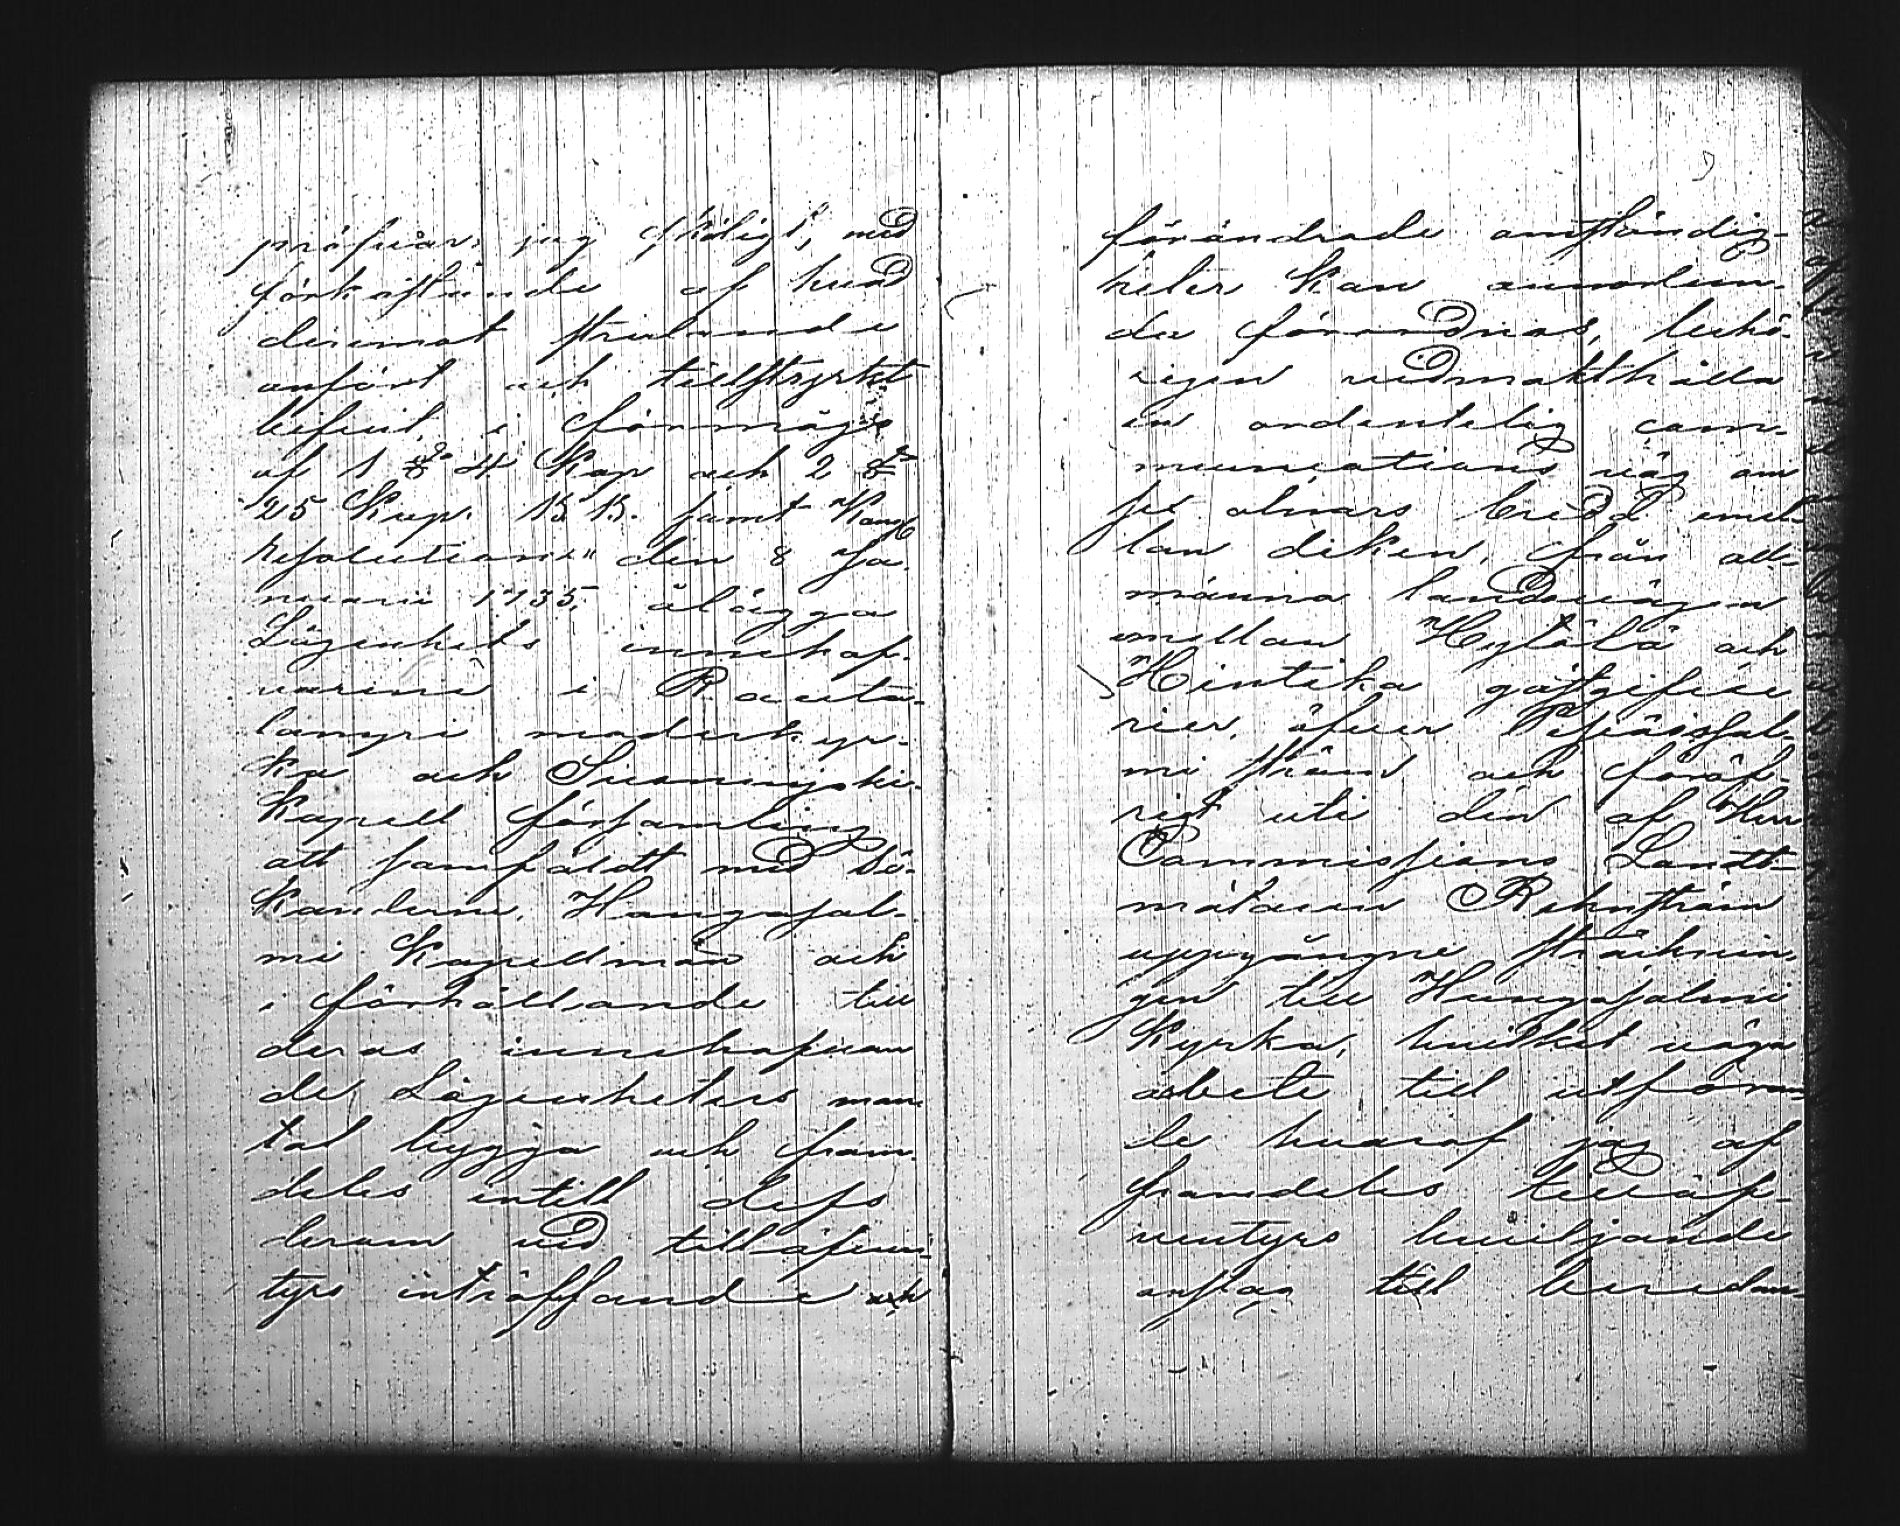 pröfvar jag skäligt, med
förkastande af hvad
deremot stridande
anfört och tillstyrkt
blifvit, i förmågo
af 1 § 4 Kap och 2 §
25 Kap. B. B. jemt Kongl
Resolutionen den 8 Ja-
nuarii 1735, ålägga
Lägenhets innehaf-
varene i Rauta-
lampi moderkyr-
ka och Suonenjoki
Kapell församling
att samfäldt med bö-
handerne, Hangasal-
mi Kapellmän och
i förhållande till
deras innehafvan
de Lägenheters man-
tal bygga och fram-
deles intill dess
derom vid tilläfven-
tyrs inträffande och
förändrade omständig-
heter kan annorlun-
da förordnas, behö-
rigen vidmakthålla
en ordentelig com-
munications väg om
sex alnars bredd emel-
lan diken, från all-
männa landsvägen
emellan Hytölä och
Hintika gästgifve
rier, öfver Kejväissal-
mi ström och föröf-
rigt uti den af Herr
Commissions Landt-
mätaren Rehnström
uppgångne sträcknin-
gen till Hangasalmi
Kyrka, hvilket väga
arbete till utföran-
de hvaraf jag af
framdeles tilläf-
ventyrs hviljande
anslag till beredan-